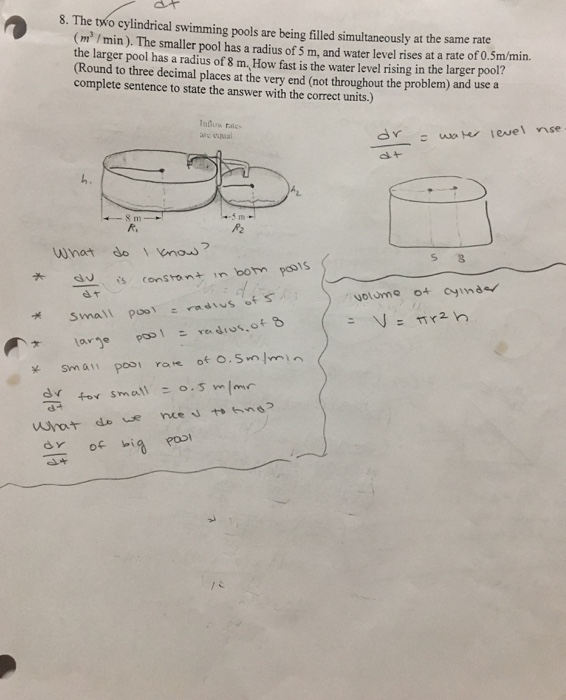 dt
8. The two cylindrical swimming pools are being filled simultaneously at the same rate
(m³/min). The smaller pool has a radius of 5 m, and water level rises at a rate of 0.5m/min.
the larger pool has a radius of 8 m. How fast is the water level rising in the larger pool?
(Round to three decimal places at the very end (not throughout the problem) and use a
complete sentence to state the answer with the correct units.)
Inflow rates
are equal
dr/dt = water level rise
h.
h2
8 m
5 m
R1
R2
5 8
What do I know?
* dv/dt is constant in both pools
* small pool = radius of 5
* large pool = radius of 8
* small pool rate of 0.5m/min
dr/dt for small = 0.5 m/mr
What do we need to find?
dr/dt of big pool
volume of cylinder
= V = πr²h